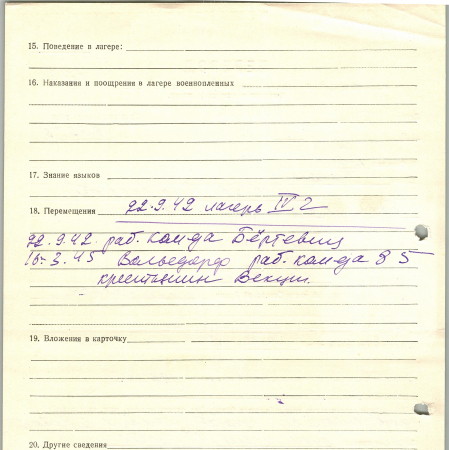 15. Поведение в лагере:
16. Наказания и поощрения в лагере военнопленных
17. Знание языков
18. Перемещения 22.9.42 лагерь IV Г
22.9.42. раб. кома-да
16.3.45 раб. кома-да 85
крестьянин
19. Вложения в карточку
20. Другие сведения